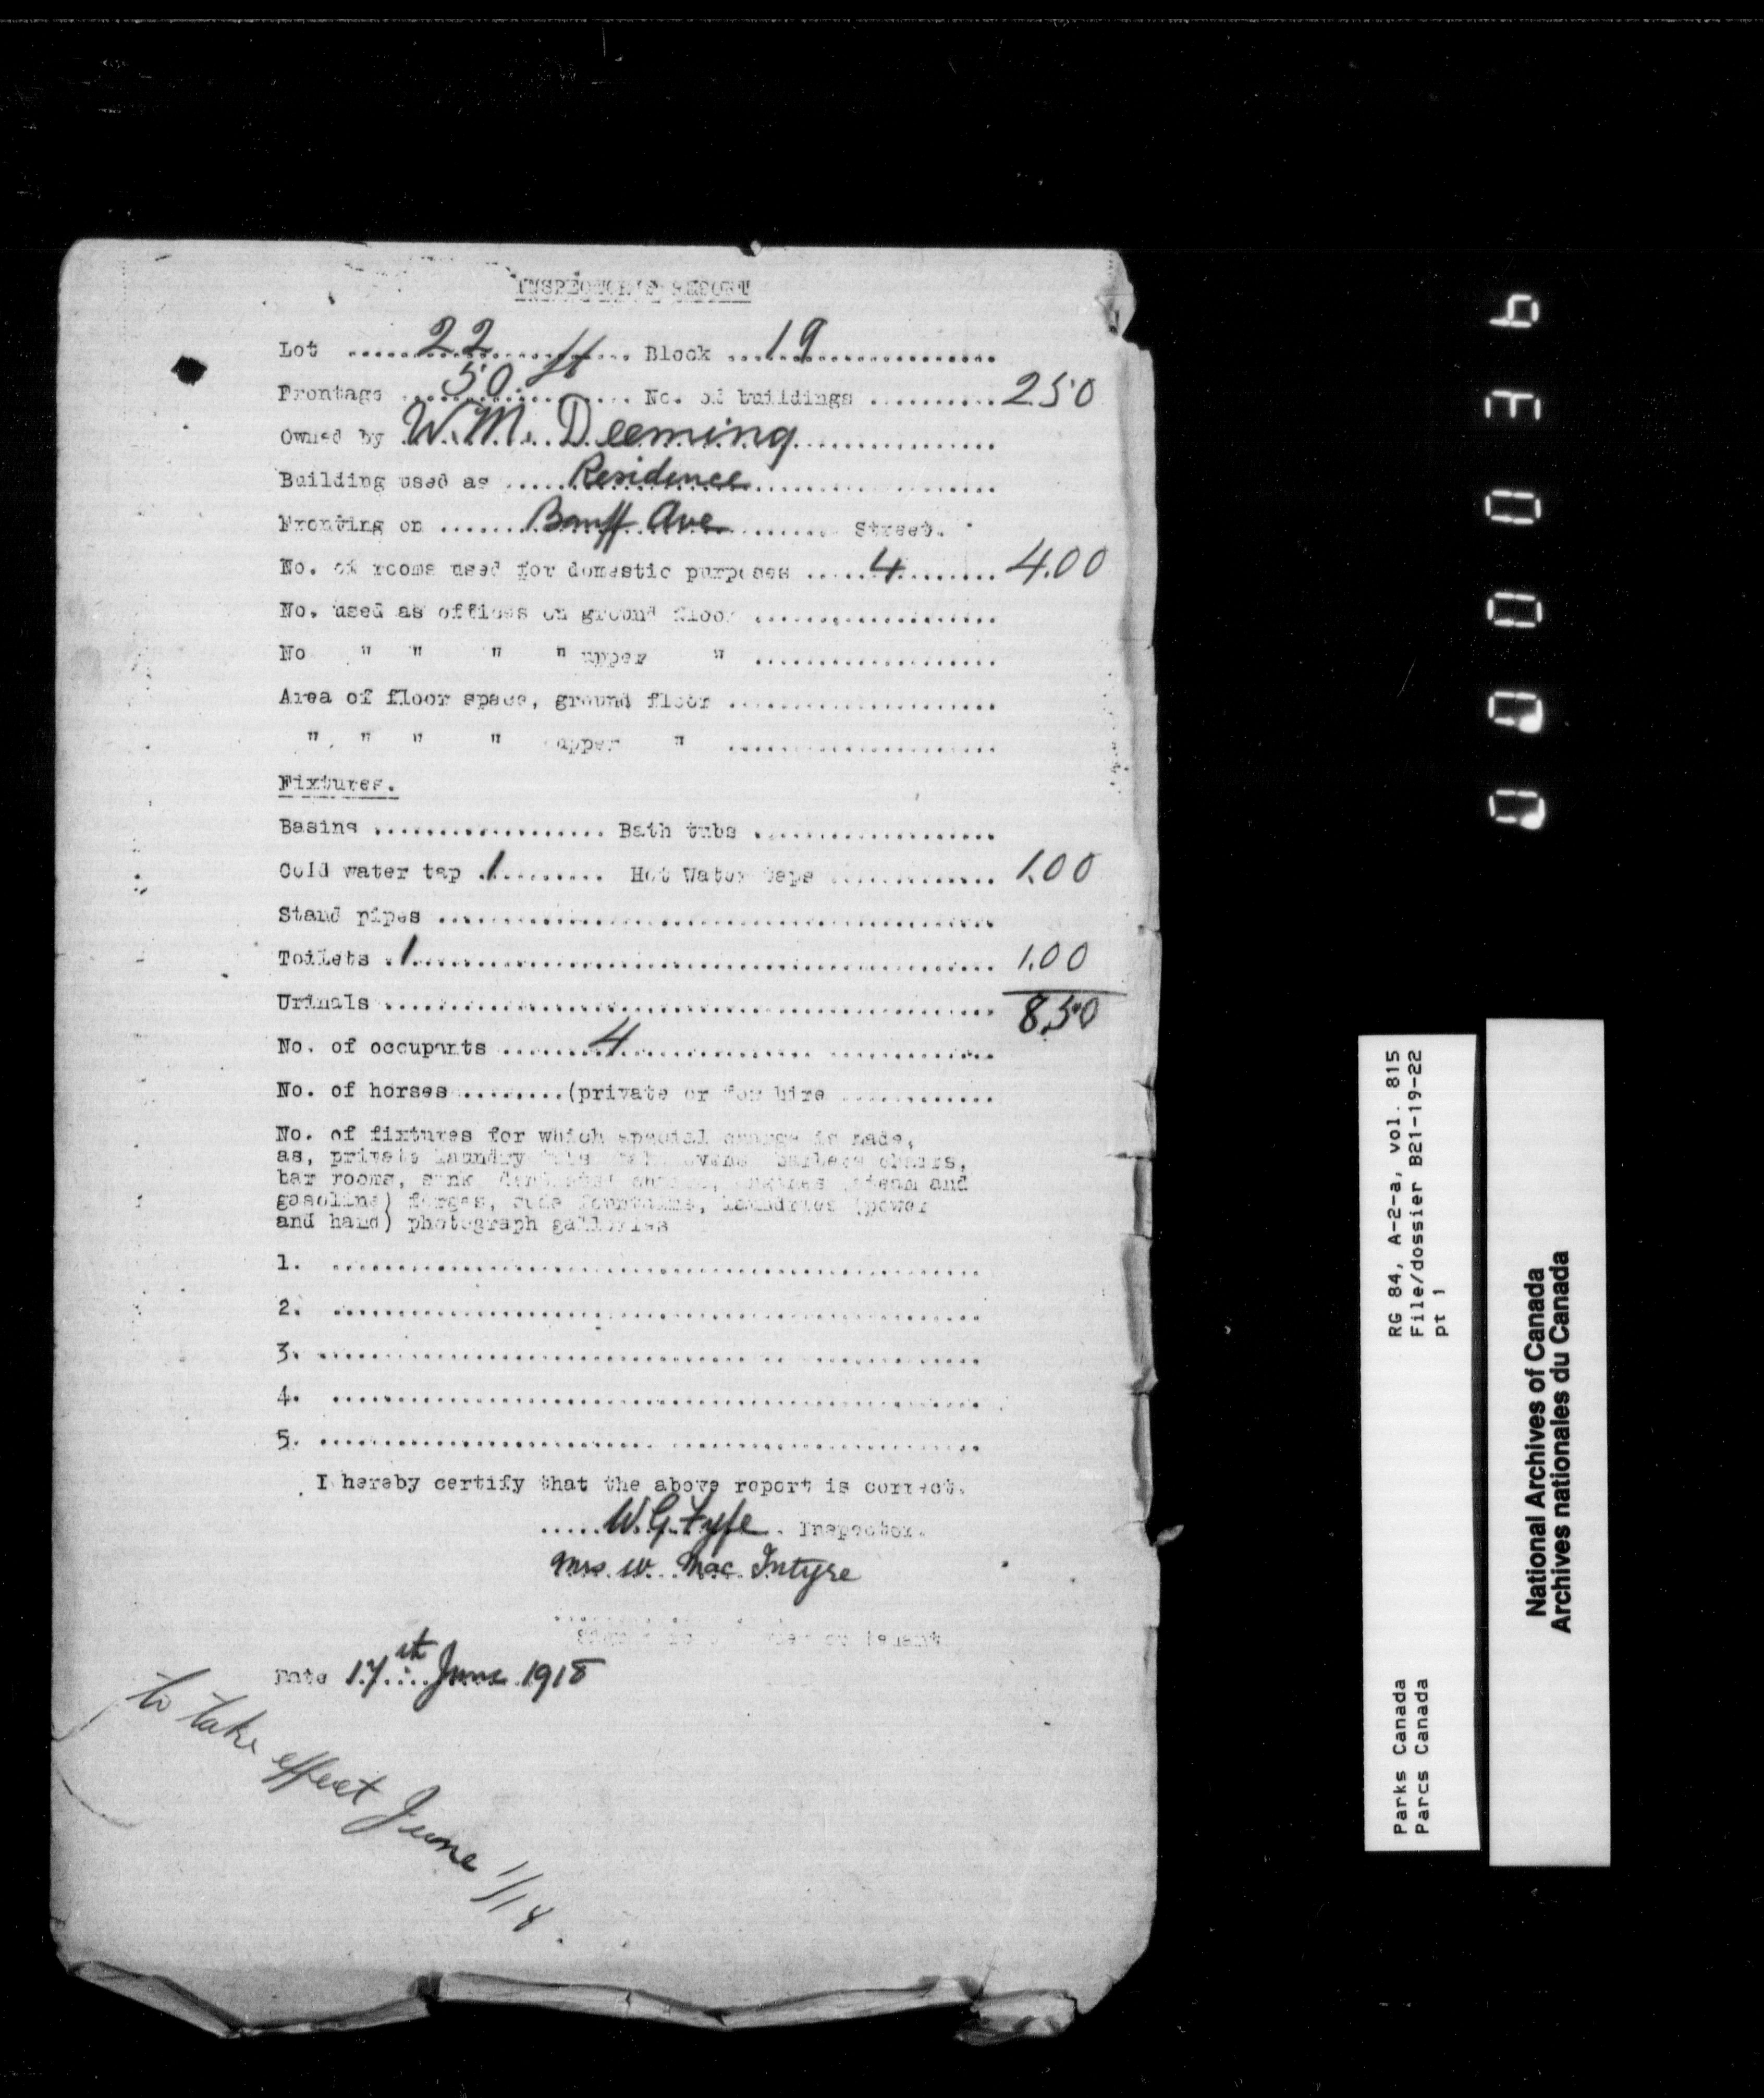 INSPECTOR'S REPORT
Lot ..... 22 ..... Block ..... 19 .....
Frontage ..... 50 ft ..... No. of buildings ..... 2.50
Owned by W.M. Deeming .....
Building used as ..... Residence .....
Fronting on ..... Banff Ave ..... Street.
No. of rooms used for domestic purposes ..... 4 ..... 4.00
No. used as offices on ground floor .....
No " " " " upper " .....
Area of floor space, ground floor .....
" " " " upper " .....
Fixtures.
Basins ..... Bath tubs .....
Cold water tap . 1 ..... Hot Water taps ..... 1.00
Stand pipes .....
Toilets . 1 ..... 1.00
Urinals ..... 8.50
No. of occupants ..... 4 .....
No. of horses ..... (private or for hire .....
No. of fixtures for which special charge is made,
as, private laundry barbers chairs,
bar rooms, steam and
gasoline) forges, soda fountains, laundries (power
and hand) photograph galleries
1. .....
2. .....
3. .....
4. .....
5. .....
I hereby certify that the above report is correct.
..... W. G. Fyfe . Inspector.
Mrs. W. Mac Intyre
or tenant
Date 17th June 1918
to take effect June 1/18.
RG 84, A-2-a, vol. 815
File/dossier B21-19-22
pt 1
Parks Canada
Parcs Canada
National Archives of Canada
Archives nationales du Canada